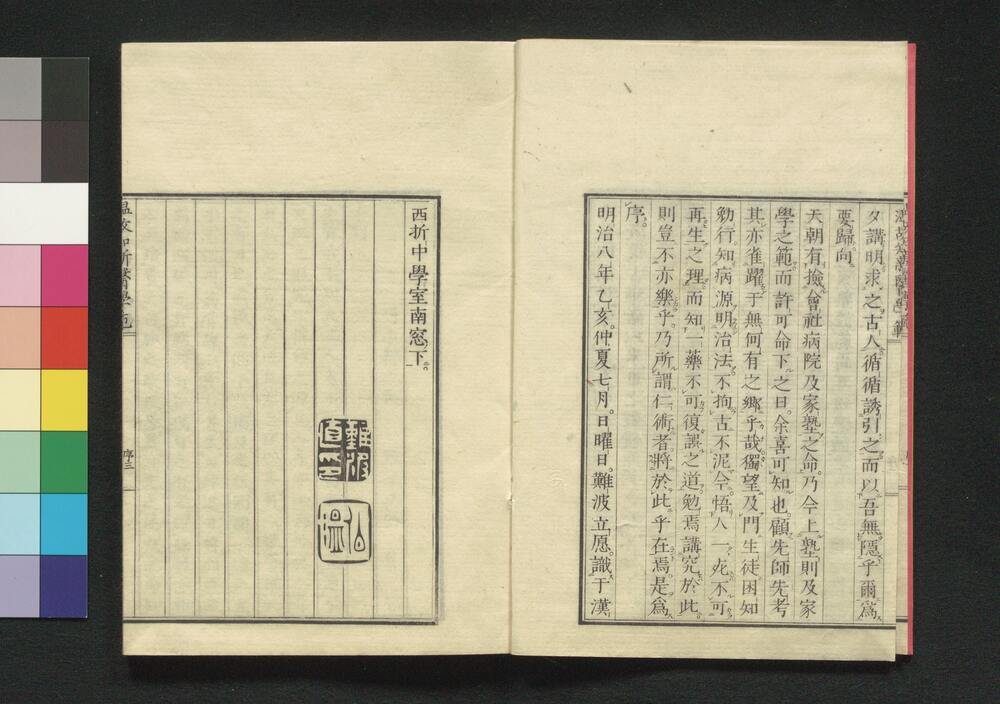 夕講明求之古人循循誘引之而以吾無隱乎爾為
要歸向
天朝有撿會社病院及家塾之命乃今上塾則及家
學之範而許可命下之日余喜可知也顧先師先考
其亦雀躍于無何有之鄉乎哉獨望及門生徒困知
勉行知病源明治法不拘古不泥今悟人一死不可
再生之理而知一藥不可復誤之道勉焉講究於此
則豈不亦樂乎乃所謂仁術者將於此乎在焉是為
序
明治八年乙亥仲夏七月日曜日難波立愿識于漢
西折中學室南窓下
序三